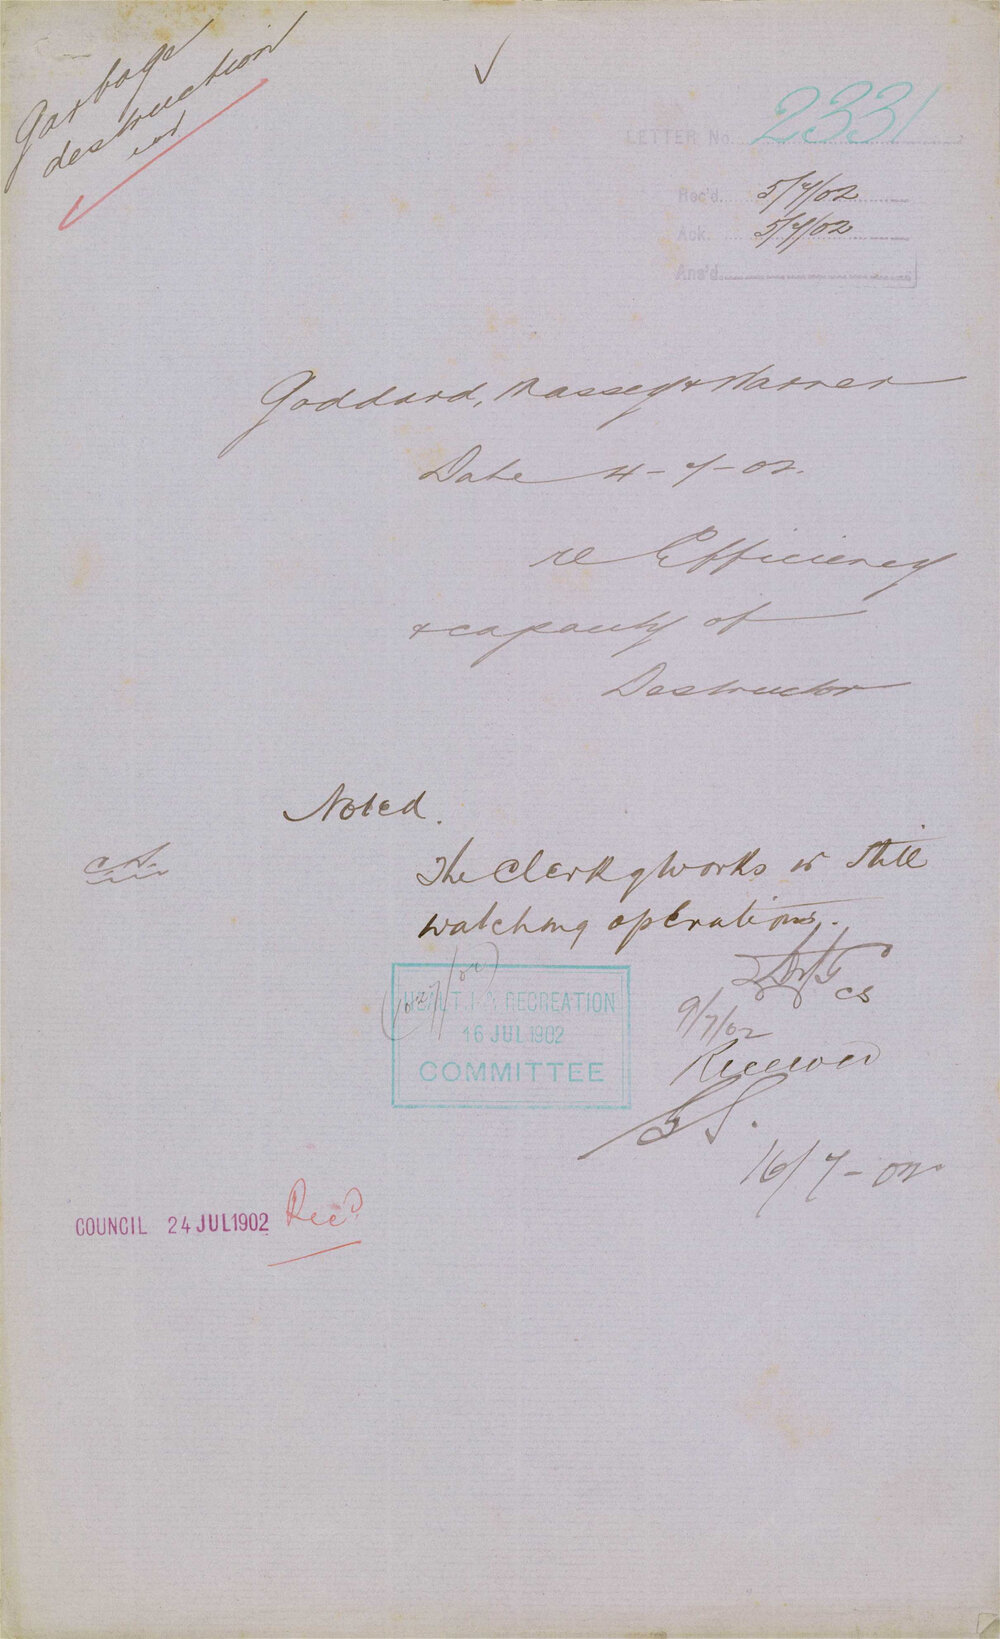 Garbage
destruction
LETTER No. 2331
Rec'd. 5/7/02
Ack. 5/7/02
Ans'd.
Goddard, Massey & Warner
Date 4-7-02.
re Efficiency
& capacity of
Destructor
Noted.
The Clerk of Works is still
watching operations.
CS
9/7/02
HEALTH & RECREATION
16 JUL 1902
COMMITTEE
Received
16/7-02
COUNCIL 24 JUL 1902 Recd